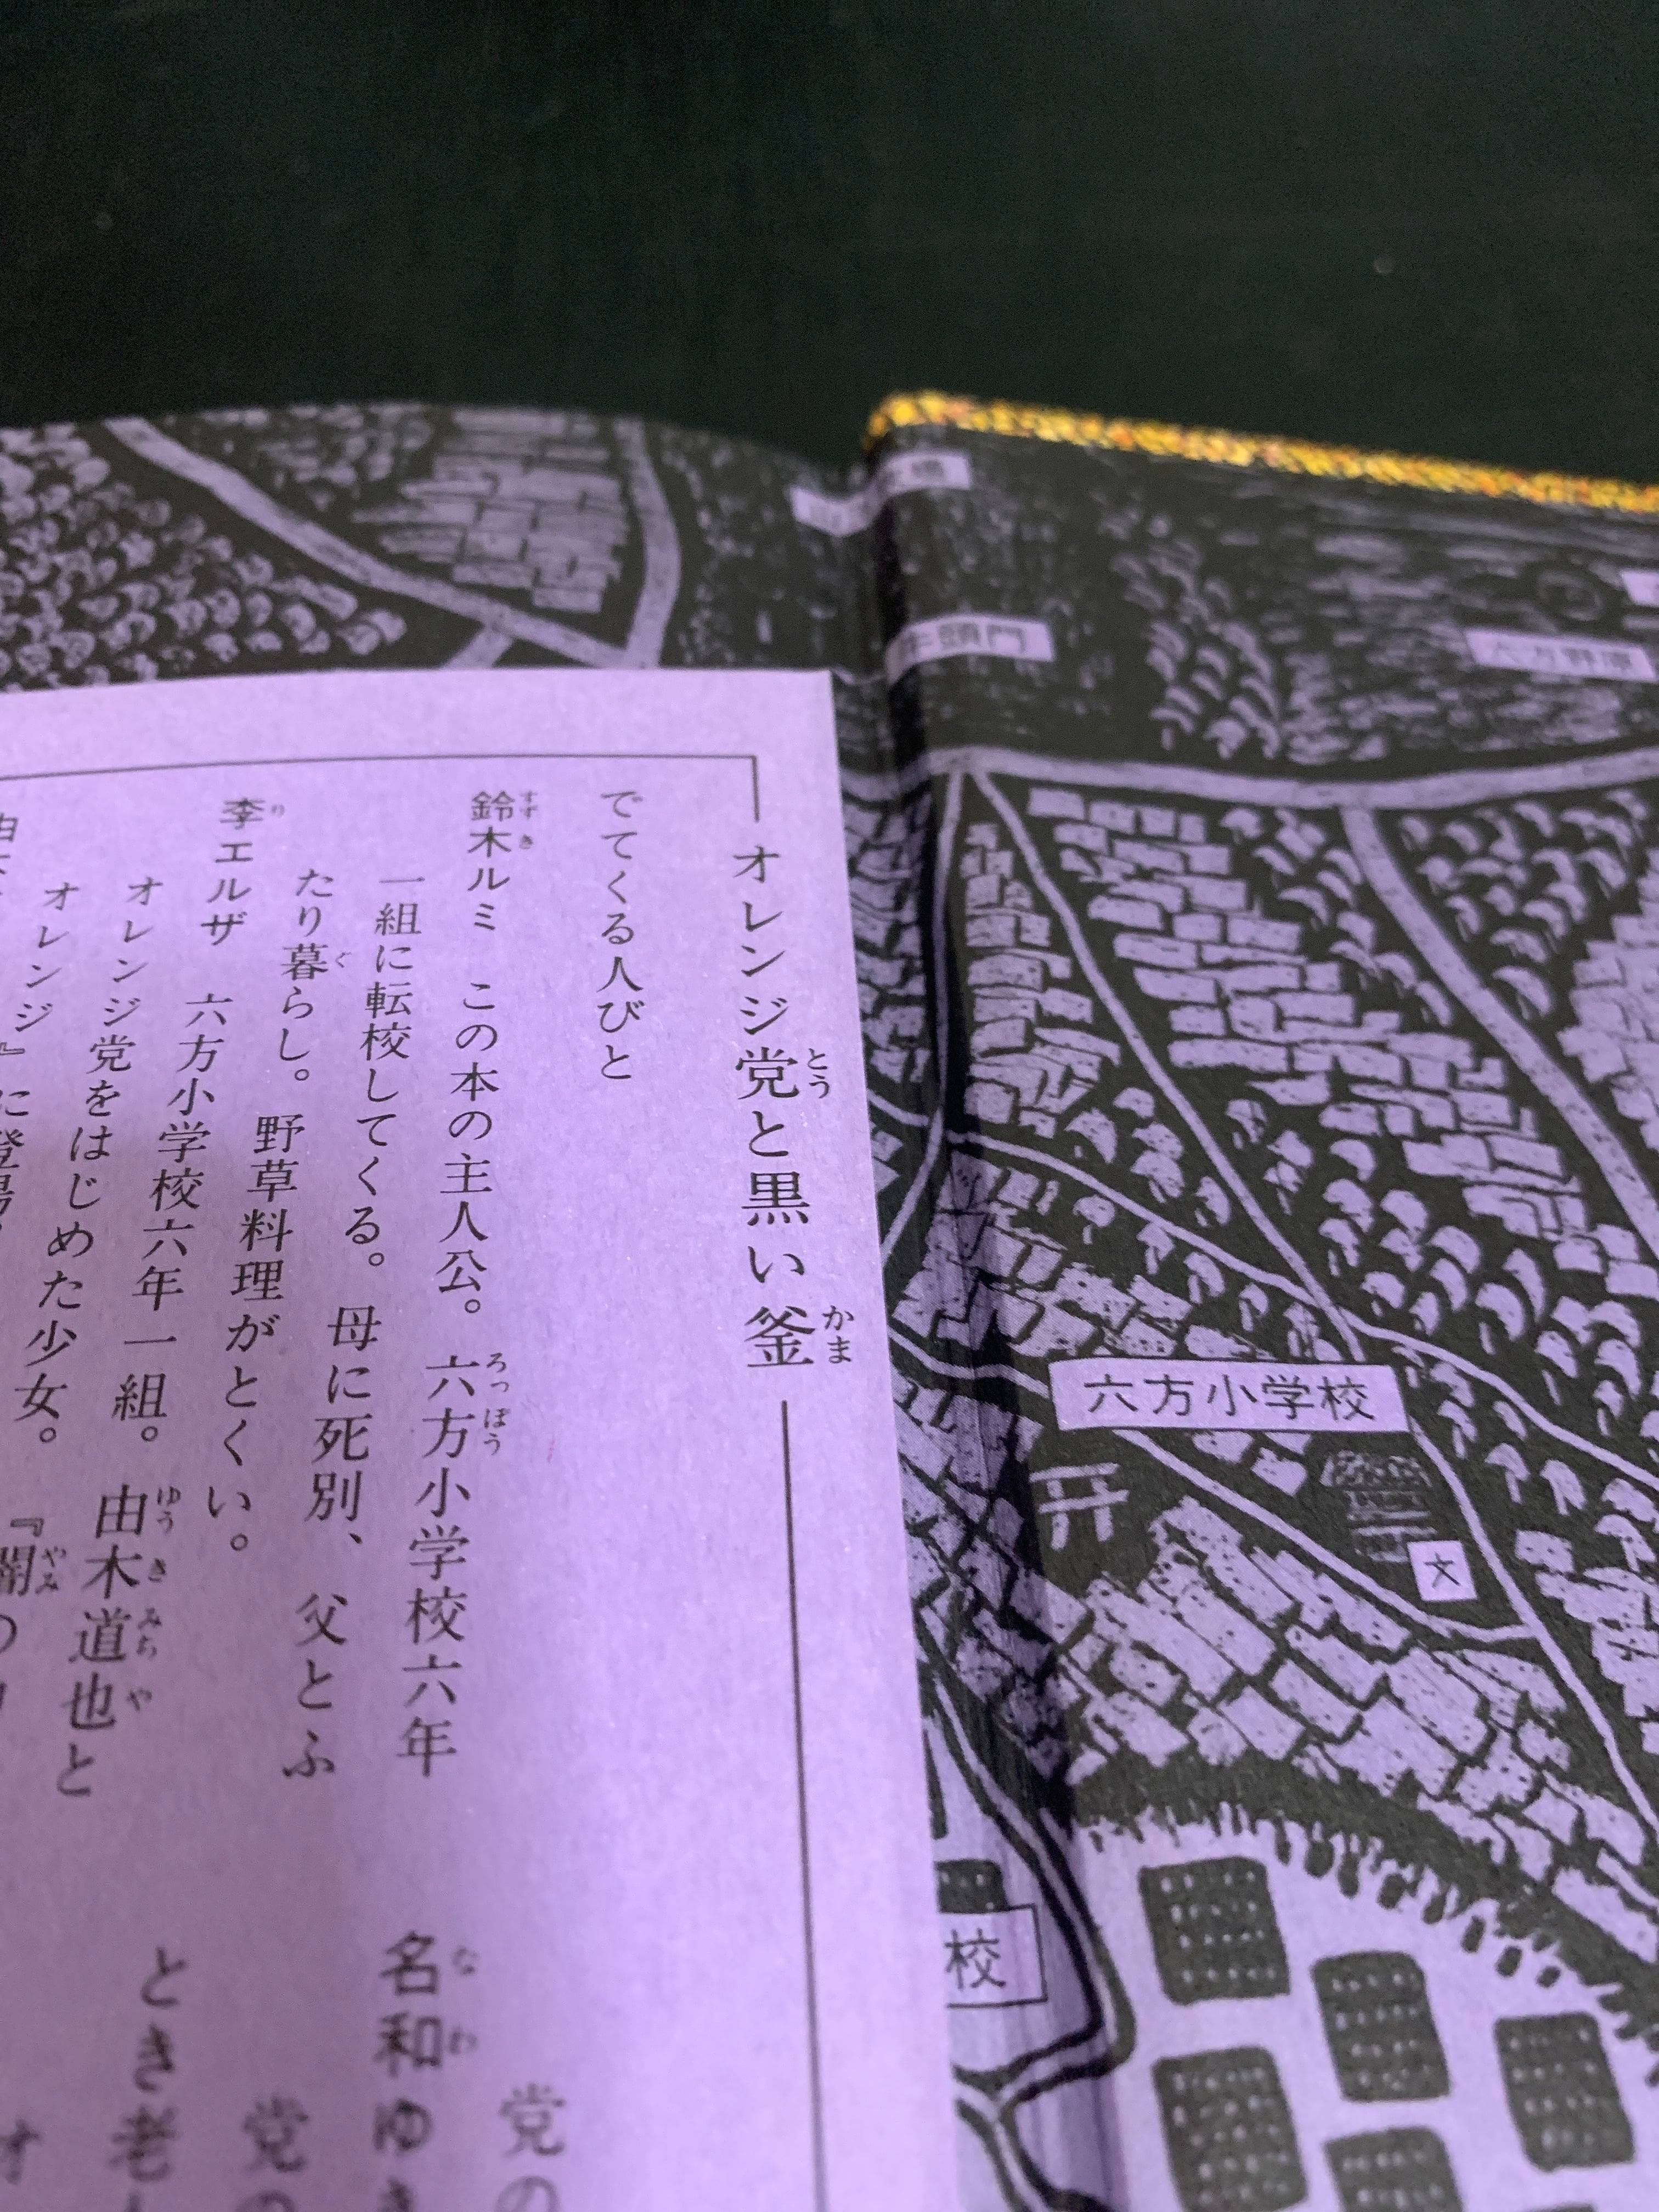 オレンジ党と黒い釜
とう
かま
でてくる人びと
鈴木ルミ この本の主人公。六方小学校六年
すずき
ろっぽう
一組に転校してくる。母に死別、父とふ
たり暮らし。野草料理がとくい。
ぐ
李エルザ 六方小学校六年一組。由木道也と
り
ゆうきみちや
オレンジ党をはじめた少女。『闇の
やみ
オレンジ』に登場
党の
名和ゆき
なわ
党の
とき老
六方小学校
文
牛頭門
六方野原
校